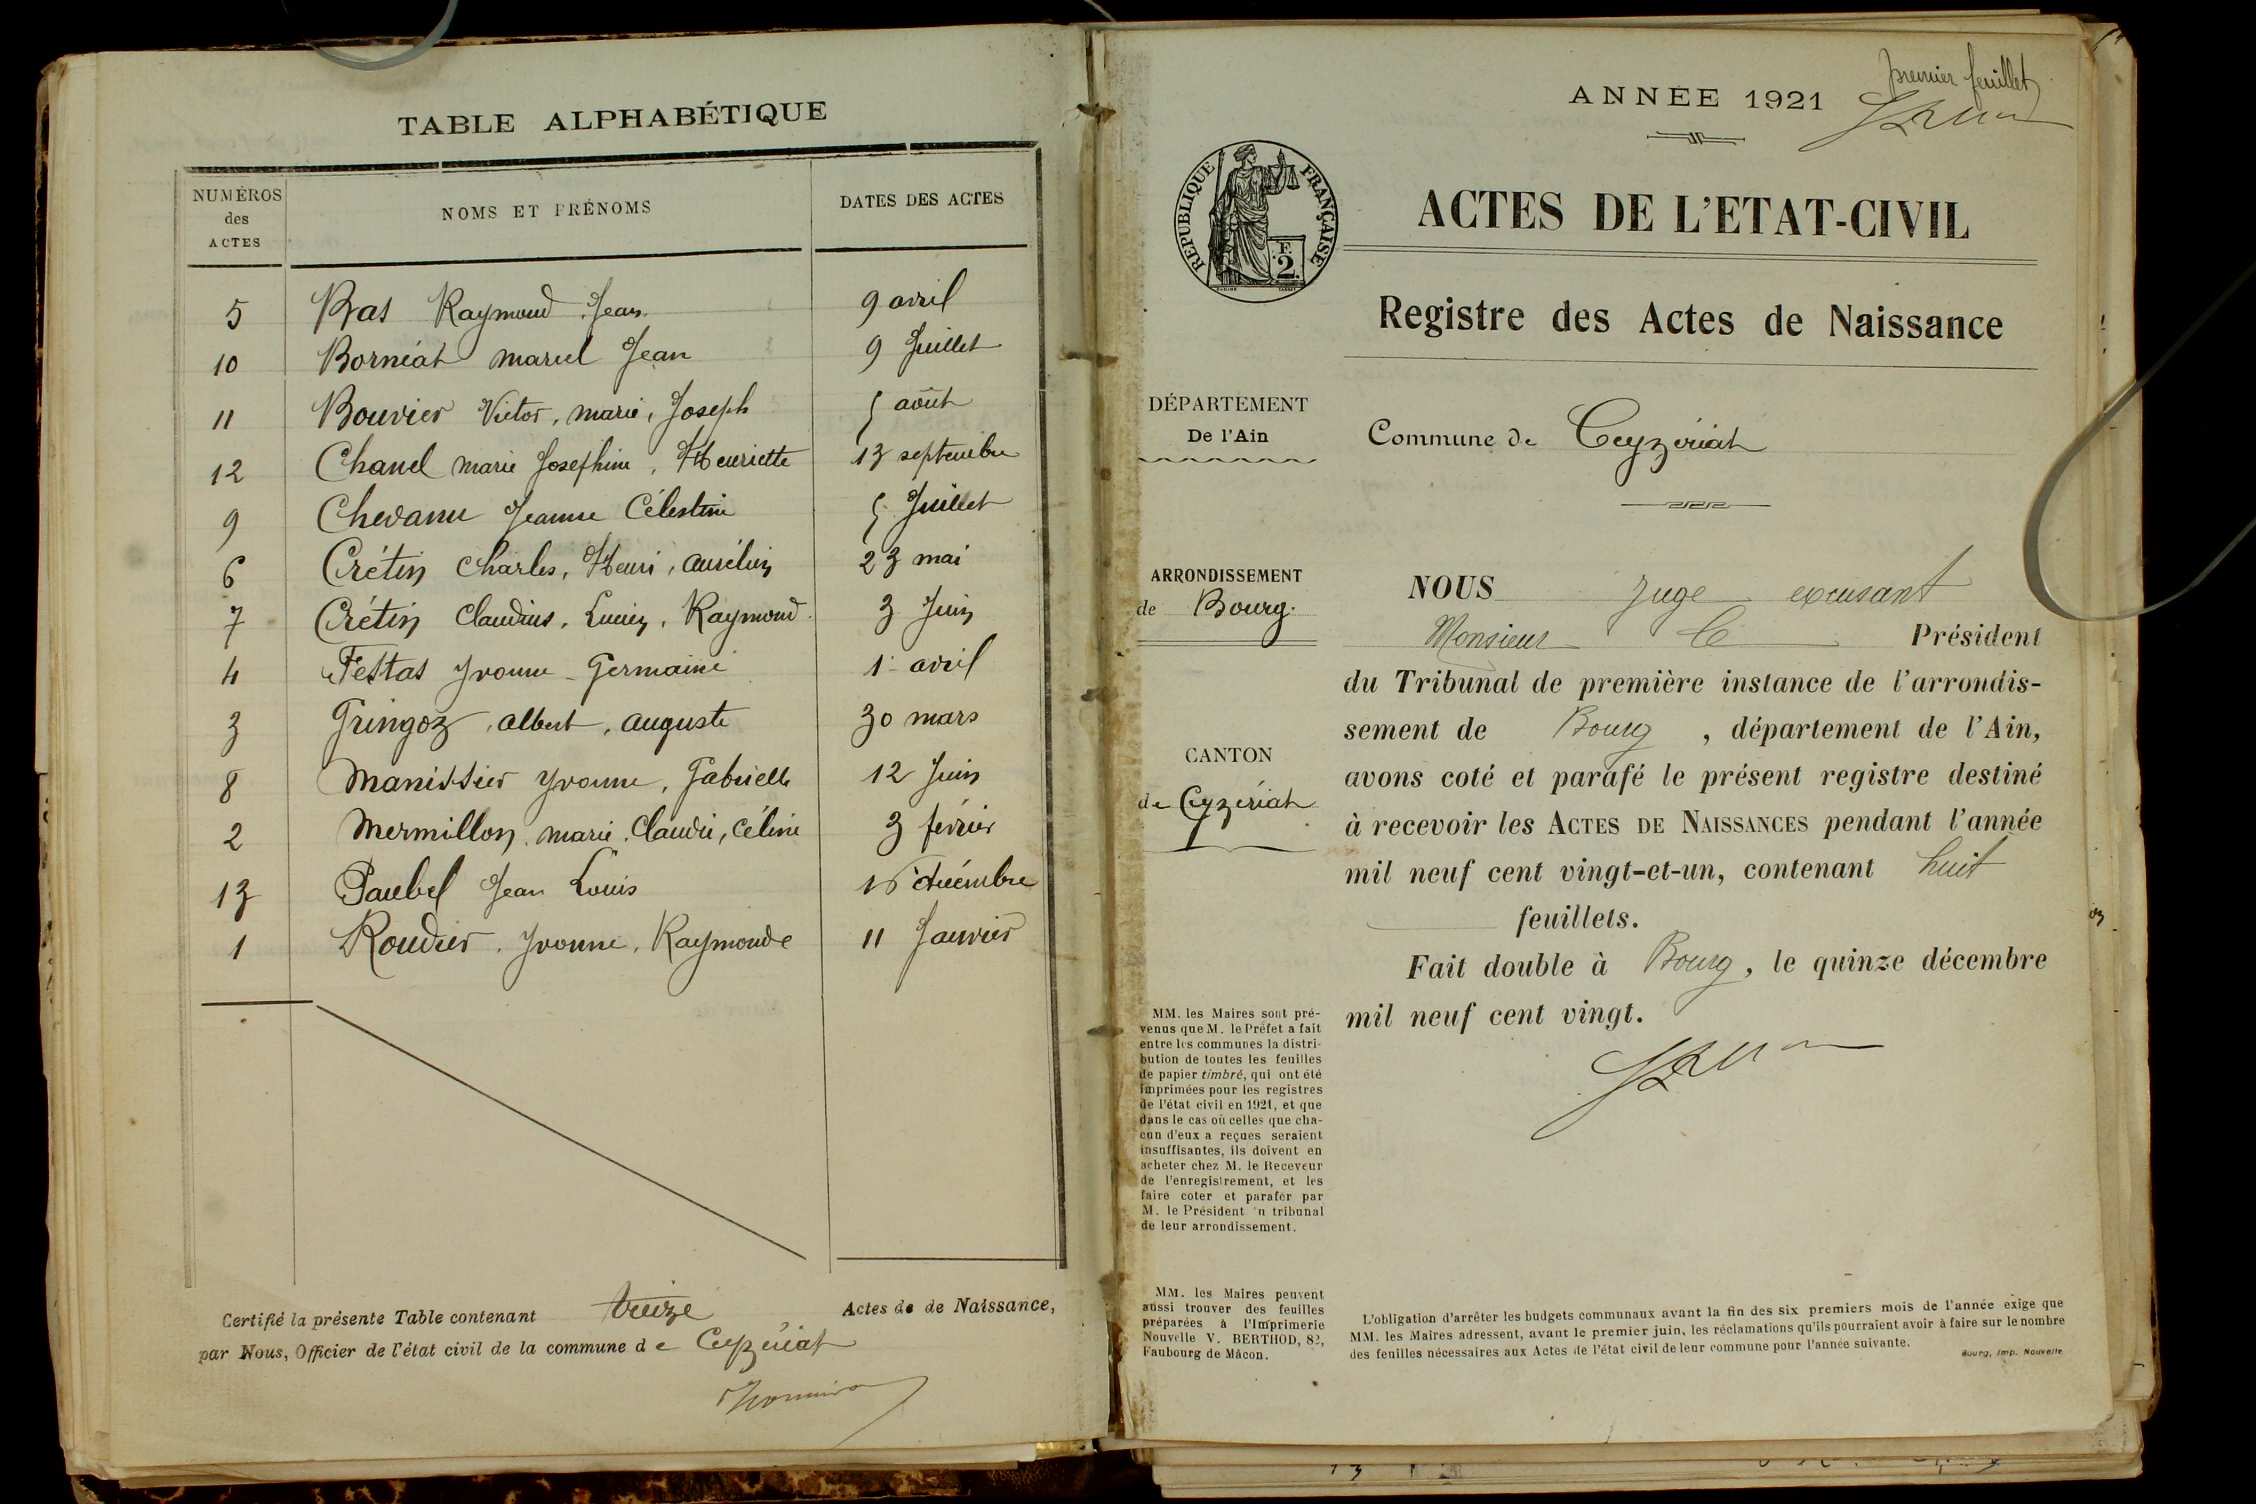 TABLE ALPHABÉTIQUE
NUMÉROS des ACTES NOMS ET PRÉNOMS DATES DES ACTES
5 Bas Raymond Jean 9 avril
10 Borniat Marcel Jean 9 Juillet
11 Bouvier Victor, Marie, Joseph 5 août
12 Chanel Marie Josephine, Henriette 13 septembre
9 Chevanne Jeanne Célestine 5 Juillet
6 Crétin Charles, Henri, Aurélien 23 mai
7 Crétin Claudius, Lucien, Raymond 3 Juin
4 Festas Yvonne - Germaine 1er avril
3 Gringoz, Albert, Auguste 30 mars
8 Manissier Yvonne, Gabrielle 12 Juin
2 Mermillon, Marie, Claudie, Céline 3 février
13 Paubel Jean Louis décembre
1 Roudier, Yvonne, Raymonde 11 Janvier
Certifié la présente Table contenant treize Actes de de Naissance,
par Nous, Officier de l'état civil de la commune de Ceyzériat
premier feuillet
ANNÉE 1921
RÉPUBLIQUE FRANÇAISE
F.
2
ACTES DE L'ETAT-CIVIL
Registre des Actes de Naissance
DÉPARTEMENT
De l'Ain
Commune de Ceyzériat
ARRONDISSEMENT
de Bourg.
CANTON
de Ceyzériat
NOUS Juge excusant
Monsieur le Président
du Tribunal de première instance de l'arrondis-
sement de Bourg, département de l'Ain,
avons coté et parafé le présent registre destiné
à recevoir les ACTES DE NAISSANCES pendant l'année
mil neuf cent vingt-et-un, contenant huit
feuillets.
Fait double à Bourg, le quinze décembre
mil neuf cent vingt.
MM. les Maires sont pré-
venus que M. le Préfet a fait
entre les communes la distri-
bution de toutes les feuilles
de papier timbré, qui ont été
imprimées pour les registres
de l'état civil en 1921, et que
dans le cas où celles que cha-
cun d'eux a reçues seraient
insuffisantes, ils doivent en
acheter chez M. le Receveur
de l'enregistrement, et les
faire coter et parafer par
M. le Président 'u tribunal
de leur arrondissement.
MM. les Maires peuvent
aussi trouver des feuilles
préparées à l'Imprimerie
Nouvelle V. BERTHOD, 82,
Faubourg de Mâcon.
L'obligation d'arrêter les budgets communaux avant la fin des six premiers mois de l'année exige que
MM. les Maires adressent, avant le premier juin, les réclamations qu'ils pourraient avoir à faire sur le nombre
des feuilles nécessaires aux Actes de l'état civil de leur commune pour l'année suivante.
Bourg, Imp. Nouvelle